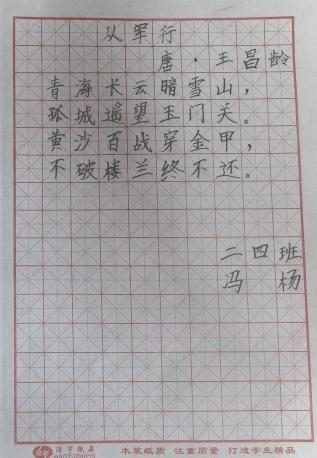 从军行
唐·王昌龄
青海长云暗雪山，
孤城遥望玉门关。
黄沙百战穿金甲，
不破楼兰终不还。
二四班
冯杨
木浆纸质 注重质量 打造学生精品